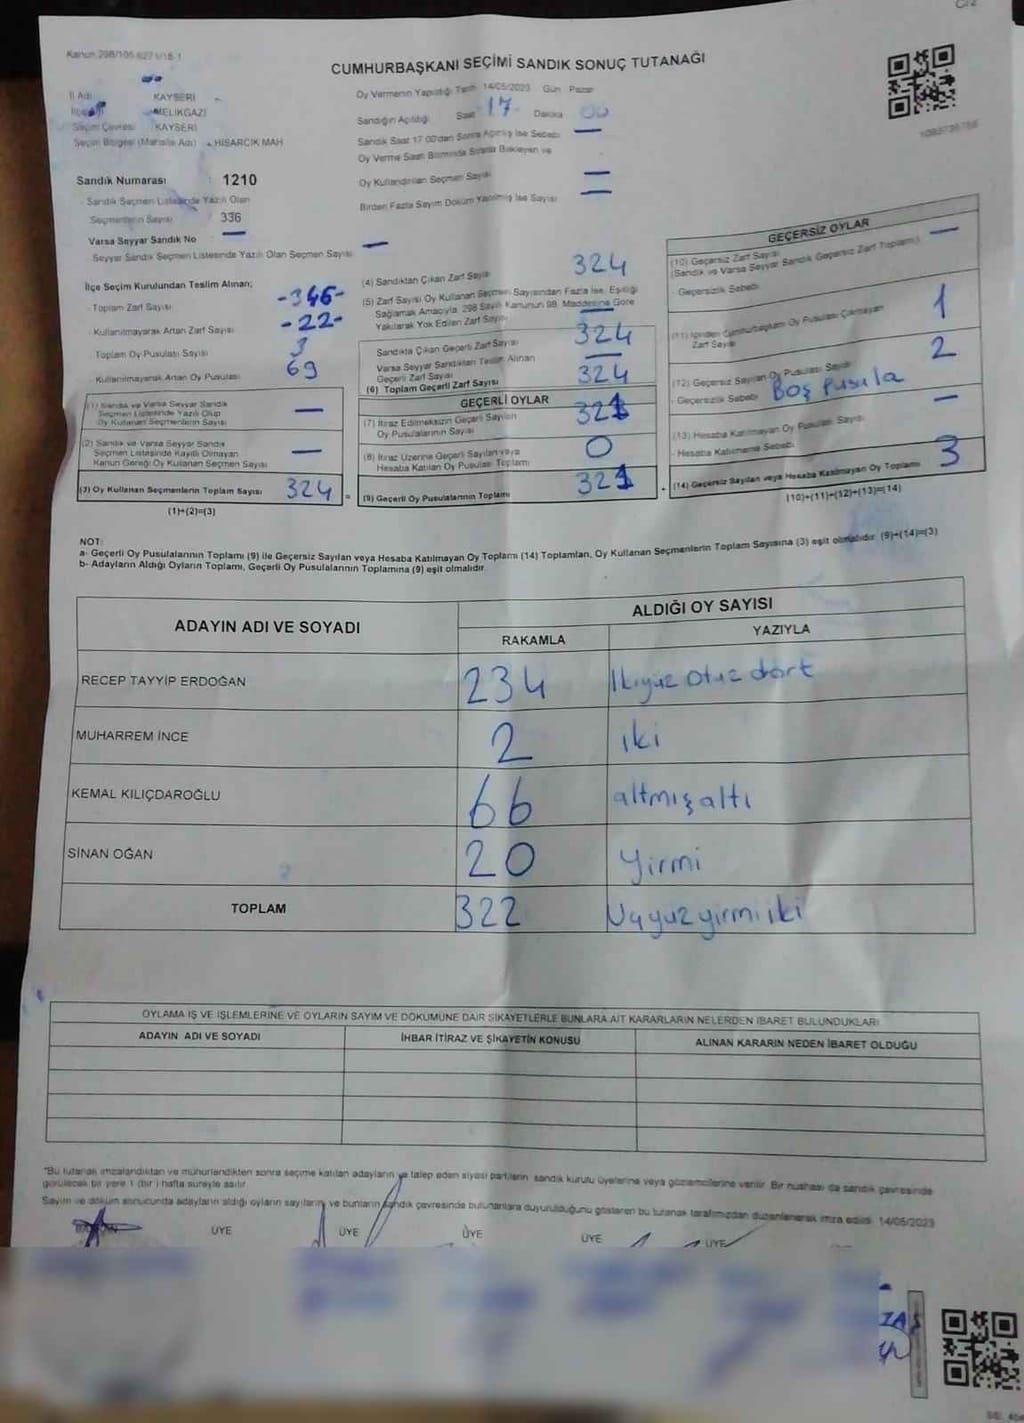 Kanun 298/105
CUMHURBAŞKANI SEÇİMİ SANDIK SONUÇ TUTANAĞI
İl Adı KAYSERİ
MELİKGAZİ
Seçim Çevresi KAYSERİ
Seçim Bölgesi (Mahalle Adı) HİSARCIK MAH
Sandık Numarası 1210
Sandık Seçmen Listesinde Yazılı Olan
Seçmenlerin Sayısı 336
Varsa Seyyar Sandık No —
Seyyar Sandık Seçmen Listesinde Yazılı Olan Seçmen Sayısı —
Oy Vermenin Yapıldığı Tarih 14/05/2023 Gün Pazar
Sandığın Açıldığı Saat 17 Dakika 00
Sandık Saat 17:00'dan Sonra Açılmış İse Sebebi —
Oy Verme Saati Bitiminde Sırada Bekleyen ve
Oy Kullandırılan Seçmen Sayısı —
Birden Fazla Sayım Döküm Yapılmış İse Sayısı —
İlçe Seçim Kurulundan Teslim Alınan;
Toplam Zarf Sayısı -346-
Kullanılmayarak Artan Zarf Sayısı -22-
Toplam Oy Pusulası Sayısı
Kullanılmayarak Artan Oy Pusulası 69
(1) Sandık ve Varsa Seyyar Sandık
Seçmen Listesinde Yazılı Olup
Oy Kullanan Seçmenlerin Sayısı —
(2) Sandık ve Varsa Seyyar Sandık
Seçmen Listesinde Kayıtlı Olmayan
Kanun Gereği Oy Kullanan Seçmen Sayısı —
(3) Oy Kullanan Seçmenlerin Toplam Sayısı 324 =
(1)+(2)=(3)
(4) Sandıktan Çıkan Zarf Sayısı 324
(5) Zarf Sayısı Oy Kullanan Seçmen Sayısından Fazla İse, Eşitliği
Sağlamak Amacıyla, 298 Sayılı Kanunun 98. Maddesine Göre
Yakılarak Yok Edilen Zarf Sayısı —
Sandıkta Çıkan Geçerli Zarf Sayısı 324
Varsa Seyyar Sandıktan Teslim Alınan
Geçerli Zarf Sayısı —
(6) Toplam Geçerli Zarf Sayısı 324
GEÇERLİ OYLAR
(7) İtiraz Edilmeksizin Geçerli Sayılan
Oy Pusulalarının Sayısı 321
(8) İtiraz Üzerine Geçerli Sayılan veya
Hesaba Katılan Oy Pusulası Toplamı 0
(9) Geçerli Oy Pusulalarının Toplamı 321 +
GEÇERSİZ OYLAR
(10) Geçersiz Zarf Sayısı
(Sandık ve Varsa Seyyar Sandık Geçersiz Zarf Toplamı) —
Geçersizlik Sebebi
(11) İçinden Cumhurbaşkanı Oy Pusulası Çıkmayan
Zarf Sayısı 1
(12) Geçersiz Sayılan Oy Pusulası Sayısı 2
Geçersizlik Sebebi Boş Pusula
(13) Hesaba Katılmayan Oy Pusulası Sayısı —
Hesaba Katılmama Sebebi
(14) Geçersiz Sayılan veya Hesaba Katılmayan Oy Toplamı 3
(10)+(11)+(12)+(13)=(14)
NOT:
a- Geçerli Oy Pusulalarının Toplamı (9) ile Geçersiz Sayılan veya Hesaba Katılmayan Oy Toplamı (14) Toplamları, Oy Kullanan Seçmenlerin Toplam Sayısına (3) eşit olmalıdır. (9)+(14)=(3)
b- Adayların Aldığı Oyların Toplamı, Geçerli Oy Pusulalarının Toplamına (9) eşit olmalıdır.
ADAYIN ADI VE SOYADI
ALDIĞI OY SAYISI
RAKAMLA YAZIYLA
RECEP TAYYİP ERDOĞAN 234 İkiyüz Otuz dört
MUHARREM İNCE 2 iki
KEMAL KILIÇDAROĞLU 66 altmışaltı
SİNAN OĞAN 20 Yirmi
TOPLAM 322 Üçyüzyirmiiki
OYLAMA İŞ VE İŞLEMLERİNE VE OYLARIN SAYIM VE DÖKÜMÜNE DAİR ŞİKAYETLERLE BUNLARA AİT KARARLARIN NELERDEN İBARET BULUNDUKLARI
ADAYIN ADI VE SOYADI İHBAR İTİRAZ VE ŞİKAYETİN KONUSU ALINAN KARARIN NEDEN İBARET OLDUĞU
*Bu tutanak imzalandıktan ve mühürlendikten sonra seçime katılan adayların ve talep eden siyasi partilerin sandık kurulu üyelerine veya gözlemcilerine verilir. Bir nüshası da sandık çevresinde
görülecek bir yere 1 (bir) hafta süreyle asılır.
Sayım ve döküm sonucunda adayların aldığı oyların sayılarını ve bunların sandık çevresinde bulunanlara duyurulduğunu gösteren bu tutanak tarafımızdan düzenlenerek imza edildi. 14/05/2023
ÜYE ÜYE ÜYE ÜYE ÜYE